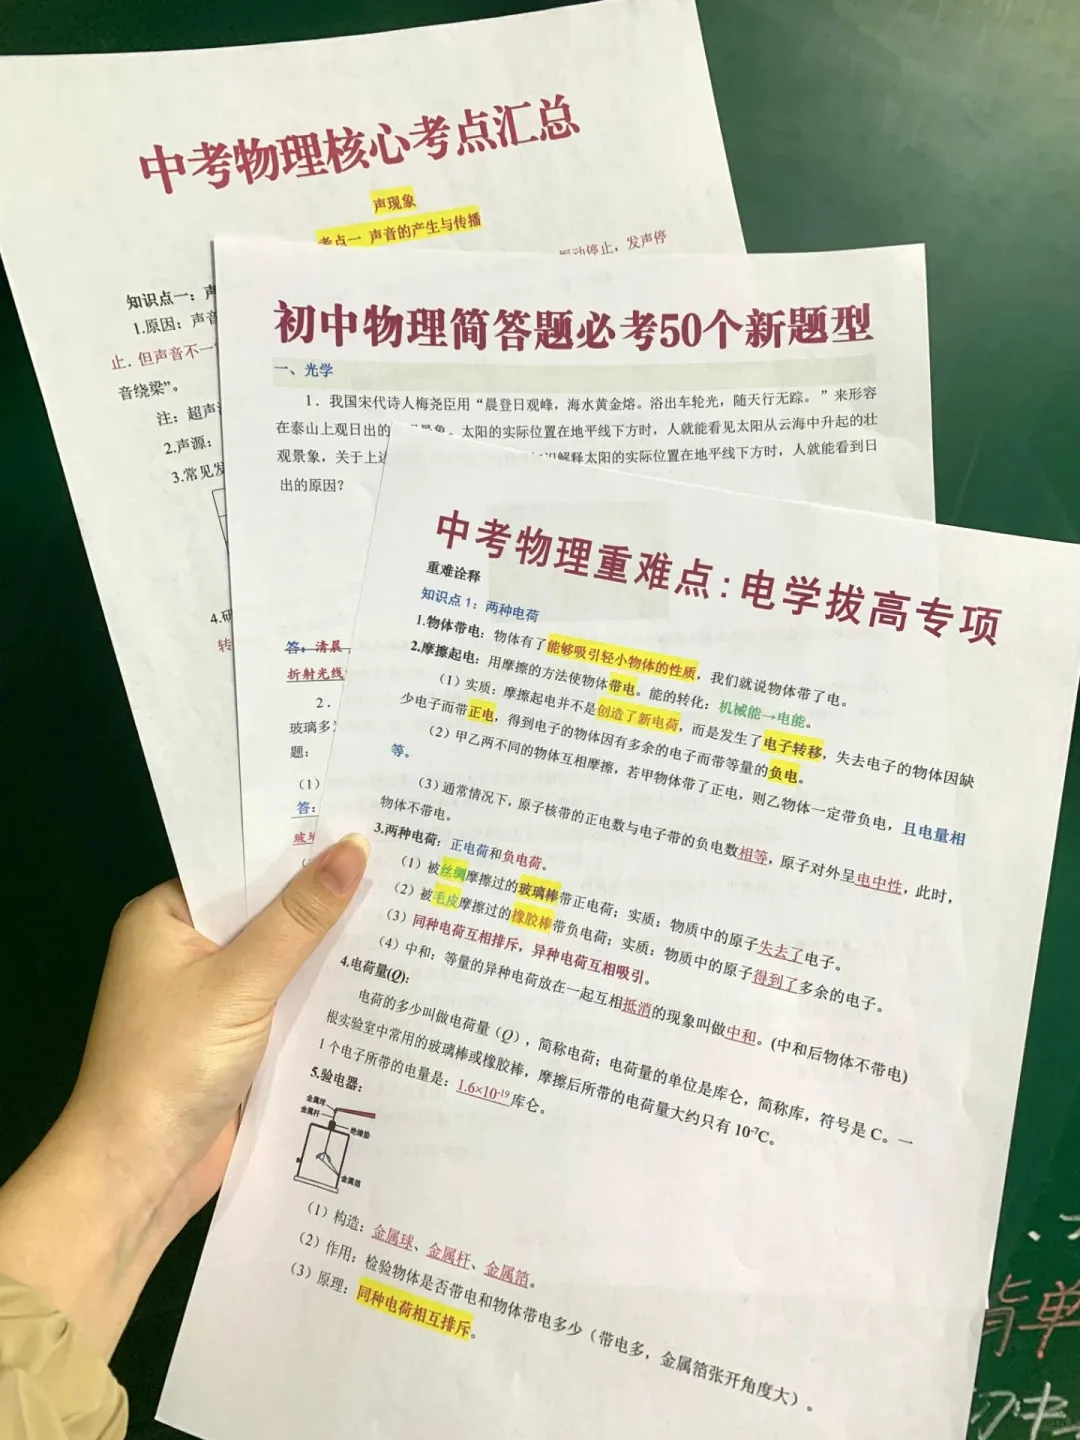 中考物理核心考点汇总
声现象
考点一 声音的产生与传播
振动停止，发声停
知识点一：声
1.原因：声音
止．但声音不一
音绕梁”。
注：超声
2.声源：
3.常见发
4.研
转
初中物理简答题必考50个新题型
一、光学
1．我国宋代诗人梅尧臣用“晨登日观峰，海水黄金熔。浴出车轮光，随天行无踪。”来形容
在泰山上观日出的 景象。太阳的实际位置在地平线下方时，人就能看见太阳从云海中升起的壮
观景象，关于上述 解释太阳的实际位置在地平线下方时，人就能看到日
出的原因？
答：清晨
折射光线
2．
玻璃多
题：
（1）
答：
玻璃
中考物理重难点:电学拔高专项
重难诠释
知识点 1：两种电荷
1.物体带电：物体有了能够吸引轻小物体的性质，我们就说物体带了电。
2.摩擦起电：用摩擦的方法使物体带电。能的转化：机械能→电能。
（1）实质：摩擦起电并不是创造了新电荷，而是发生了电子转移，失去电子的物体因缺
少电子而带正电，得到电子的物体因有多余的电子而带等量的负电。
（2）甲乙两不同的物体互相摩擦，若甲物体带了正电，则乙物体一定带负电，且电量相
等。
（3）通常情况下，原子核带的正电数与电子带的负电数相等，原子对外呈电中性，此时，
物体不带电。
3.两种电荷：正电荷和负电荷。
（1）被丝绸摩擦过的玻璃棒带正电荷；实质：物质中的原子失去了电子。
（2）被毛皮摩擦过的橡胶棒带负电荷；实质：物质中的原子得到了多余的电子。
（3）同种电荷互相排斥，异种电荷互相吸引。
（4）中和：等量的异种电荷放在一起互相抵消的现象叫做中和。(中和后物体不带电)
4.电荷量(Q)：
电荷的多少叫做电荷量（Q），简称电荷；电荷量的单位是库仑，简称库，符号是 C。一
根实验室中常用的玻璃棒或橡胶棒，摩擦后所带的电荷量大约只有 10⁻⁷C。
1 个电子所带的电量是：1.6×10⁻¹⁹库仑。
5.验电器：
金属球
金属杆
绝缘垫
金属箔
（1）构造：金属球、金属杆、金属箔。
（2）作用：检验物体是否带电和物体带电多少（带电多，金属箔张开角度大）。
（3）原理：同种电荷相互排斥。
与单